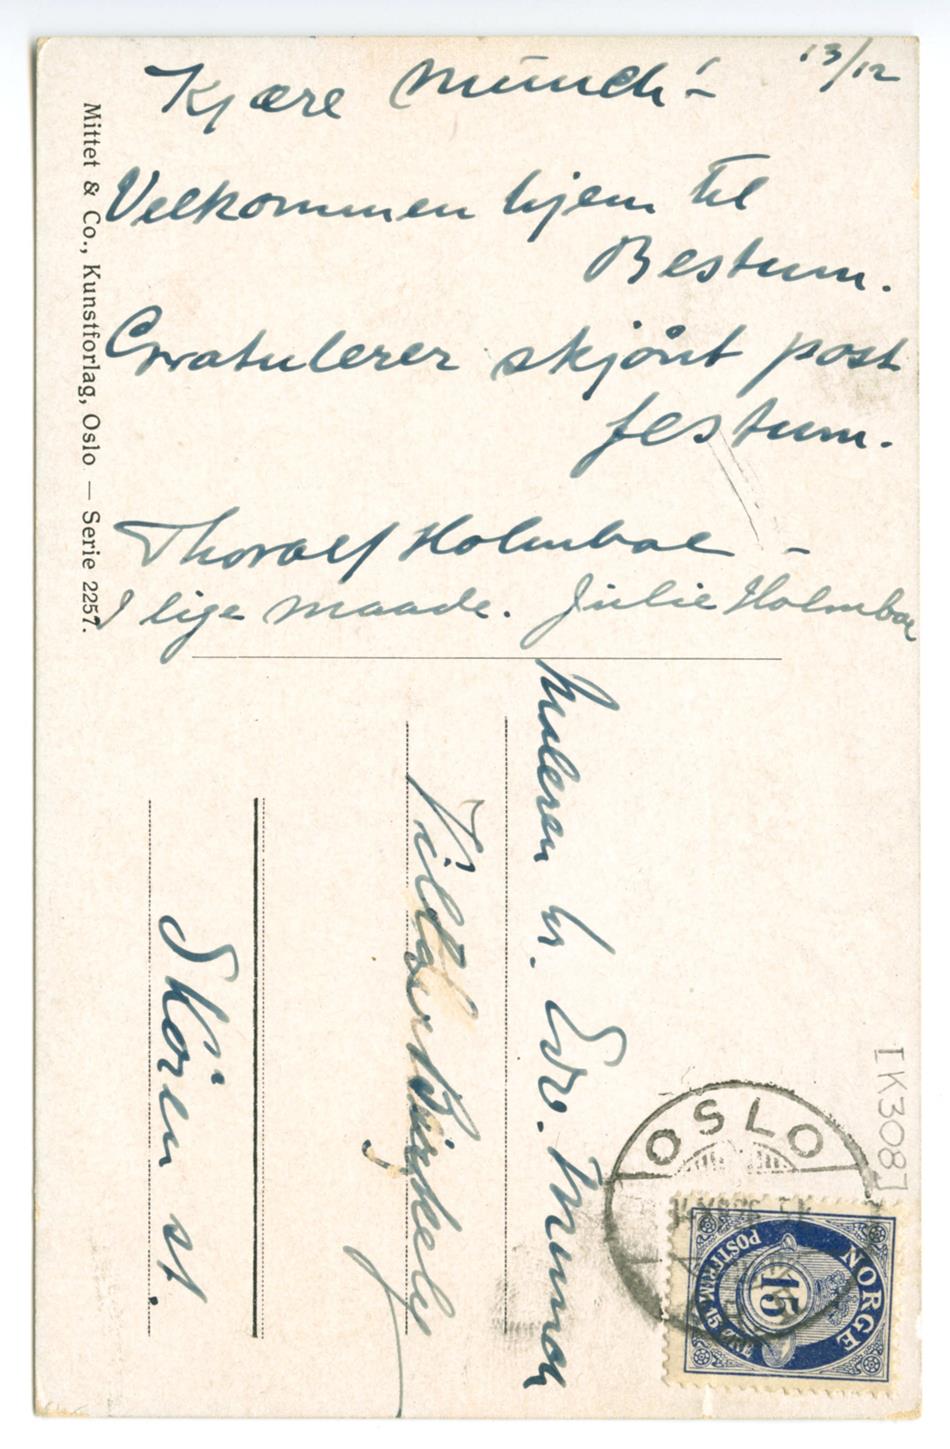 13/12
Kjære Munch! –
Velkommen hjem til
Bestum.
Gratulerer skjønt post
festum.
Thorolf Holmboe –
I lige maade. Julie Holmboe
Mittet & Co., Kunstforlag, Oslo — Serie 2257.
Maleren hr. Edv. Munch
Skøien st.
[K308]
OSLO
NORGE
15
POSTFRIM. 15 ØRE